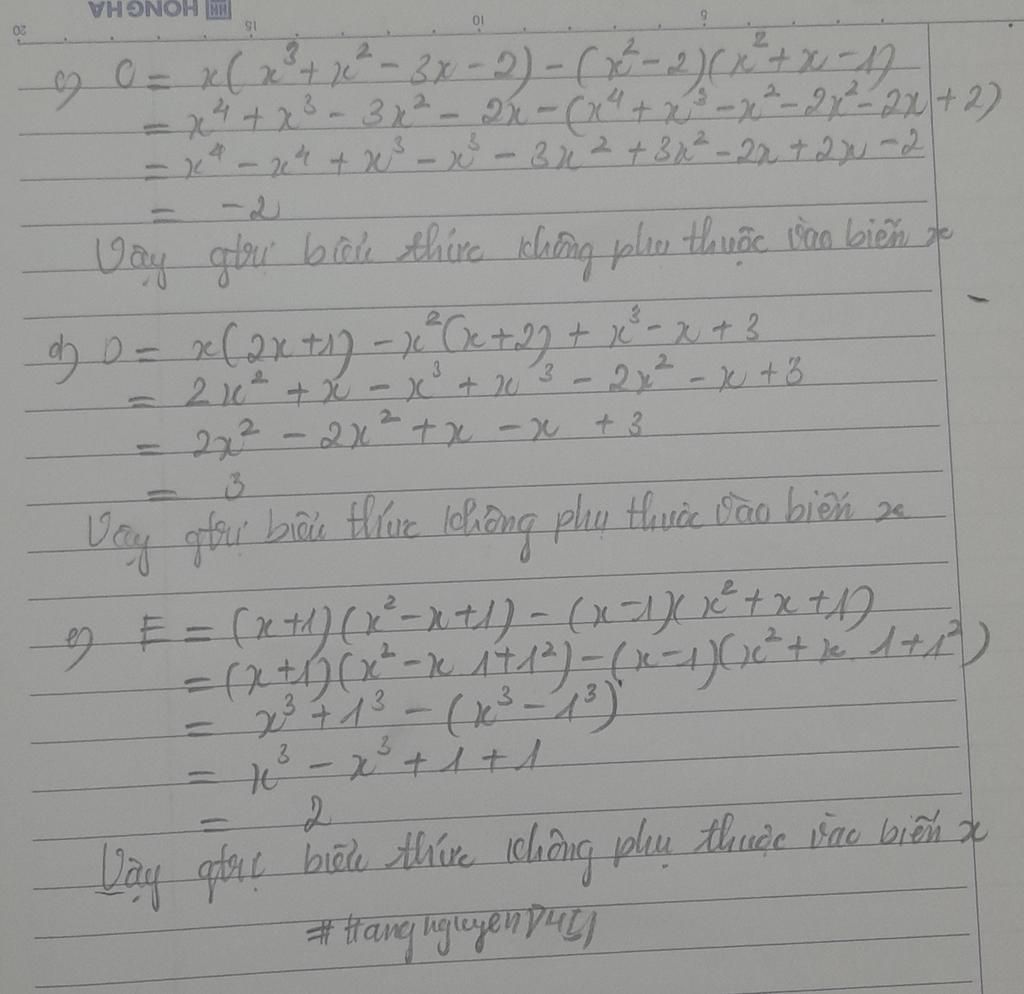 HONG HA
20 15 10 5
c) C = x(x³ + x² - 3x - 2) - (x² - 2)(x² + x - 1)
= x⁴ + x³ - 3x² - 2x - (x⁴ + x³ - x² - 2x² - 2x + 2)
= x⁴ - x⁴ + x³ - x³ - 3x² + 3x² - 2x + 2x - 2
= -2
Vậy gtrị biểu thức không phụ thuộc vào biến x
d) D = x(2x + 1) - x²(x + 2) + x³ - x + 3
= 2x² + x - x³ + x³ - 2x² - x + 3
= 2x² - 2x² + x - x + 3
= 3
Vậy gtrị biểu thức không phụ thuộc vào biến x
e) E = (x+1)(x² - x + 1) - (x - 1)(x² + x + 1)
= (x+1)(x² - x 1 + 1²) - (x - 1)(x² + x 1 + 1²)
= x³ + 1³ - (x³ - 1³)
= x³ - x³ + 1 + 1
= 2
Vậy gtrị biểu thức không phụ thuộc vào biến x